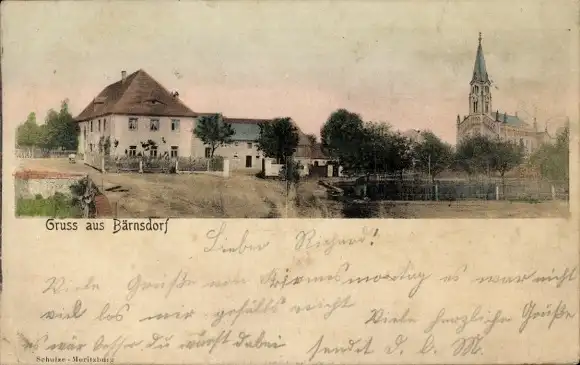 Gruss aus Bärnsdorf
Lieber Richard!
Viele Grüße von Kirmesmontag es war nicht
viel los mir gefällts nicht Viele herzliche Grüße
es wär besser du wärst dabei sendet d. l. M.
Schulze - Moritzburg